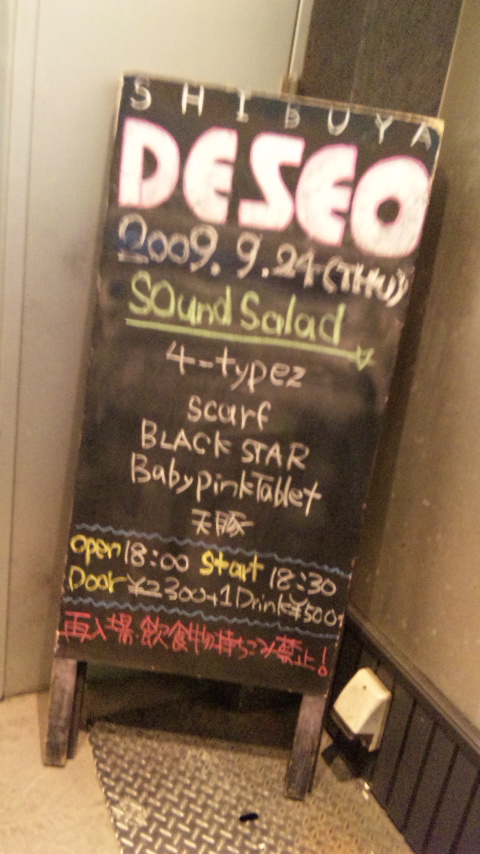 SHIBUYA
DESEO
2009.9.24(THU)
Sound Salad
4-typez
scarf
BLACK STAR
BabyPinkTablet
天豚
open 18:00 Start 18:30
Door ¥2300+1Drink¥500
再入場・飲食物の持ちこみ禁止!